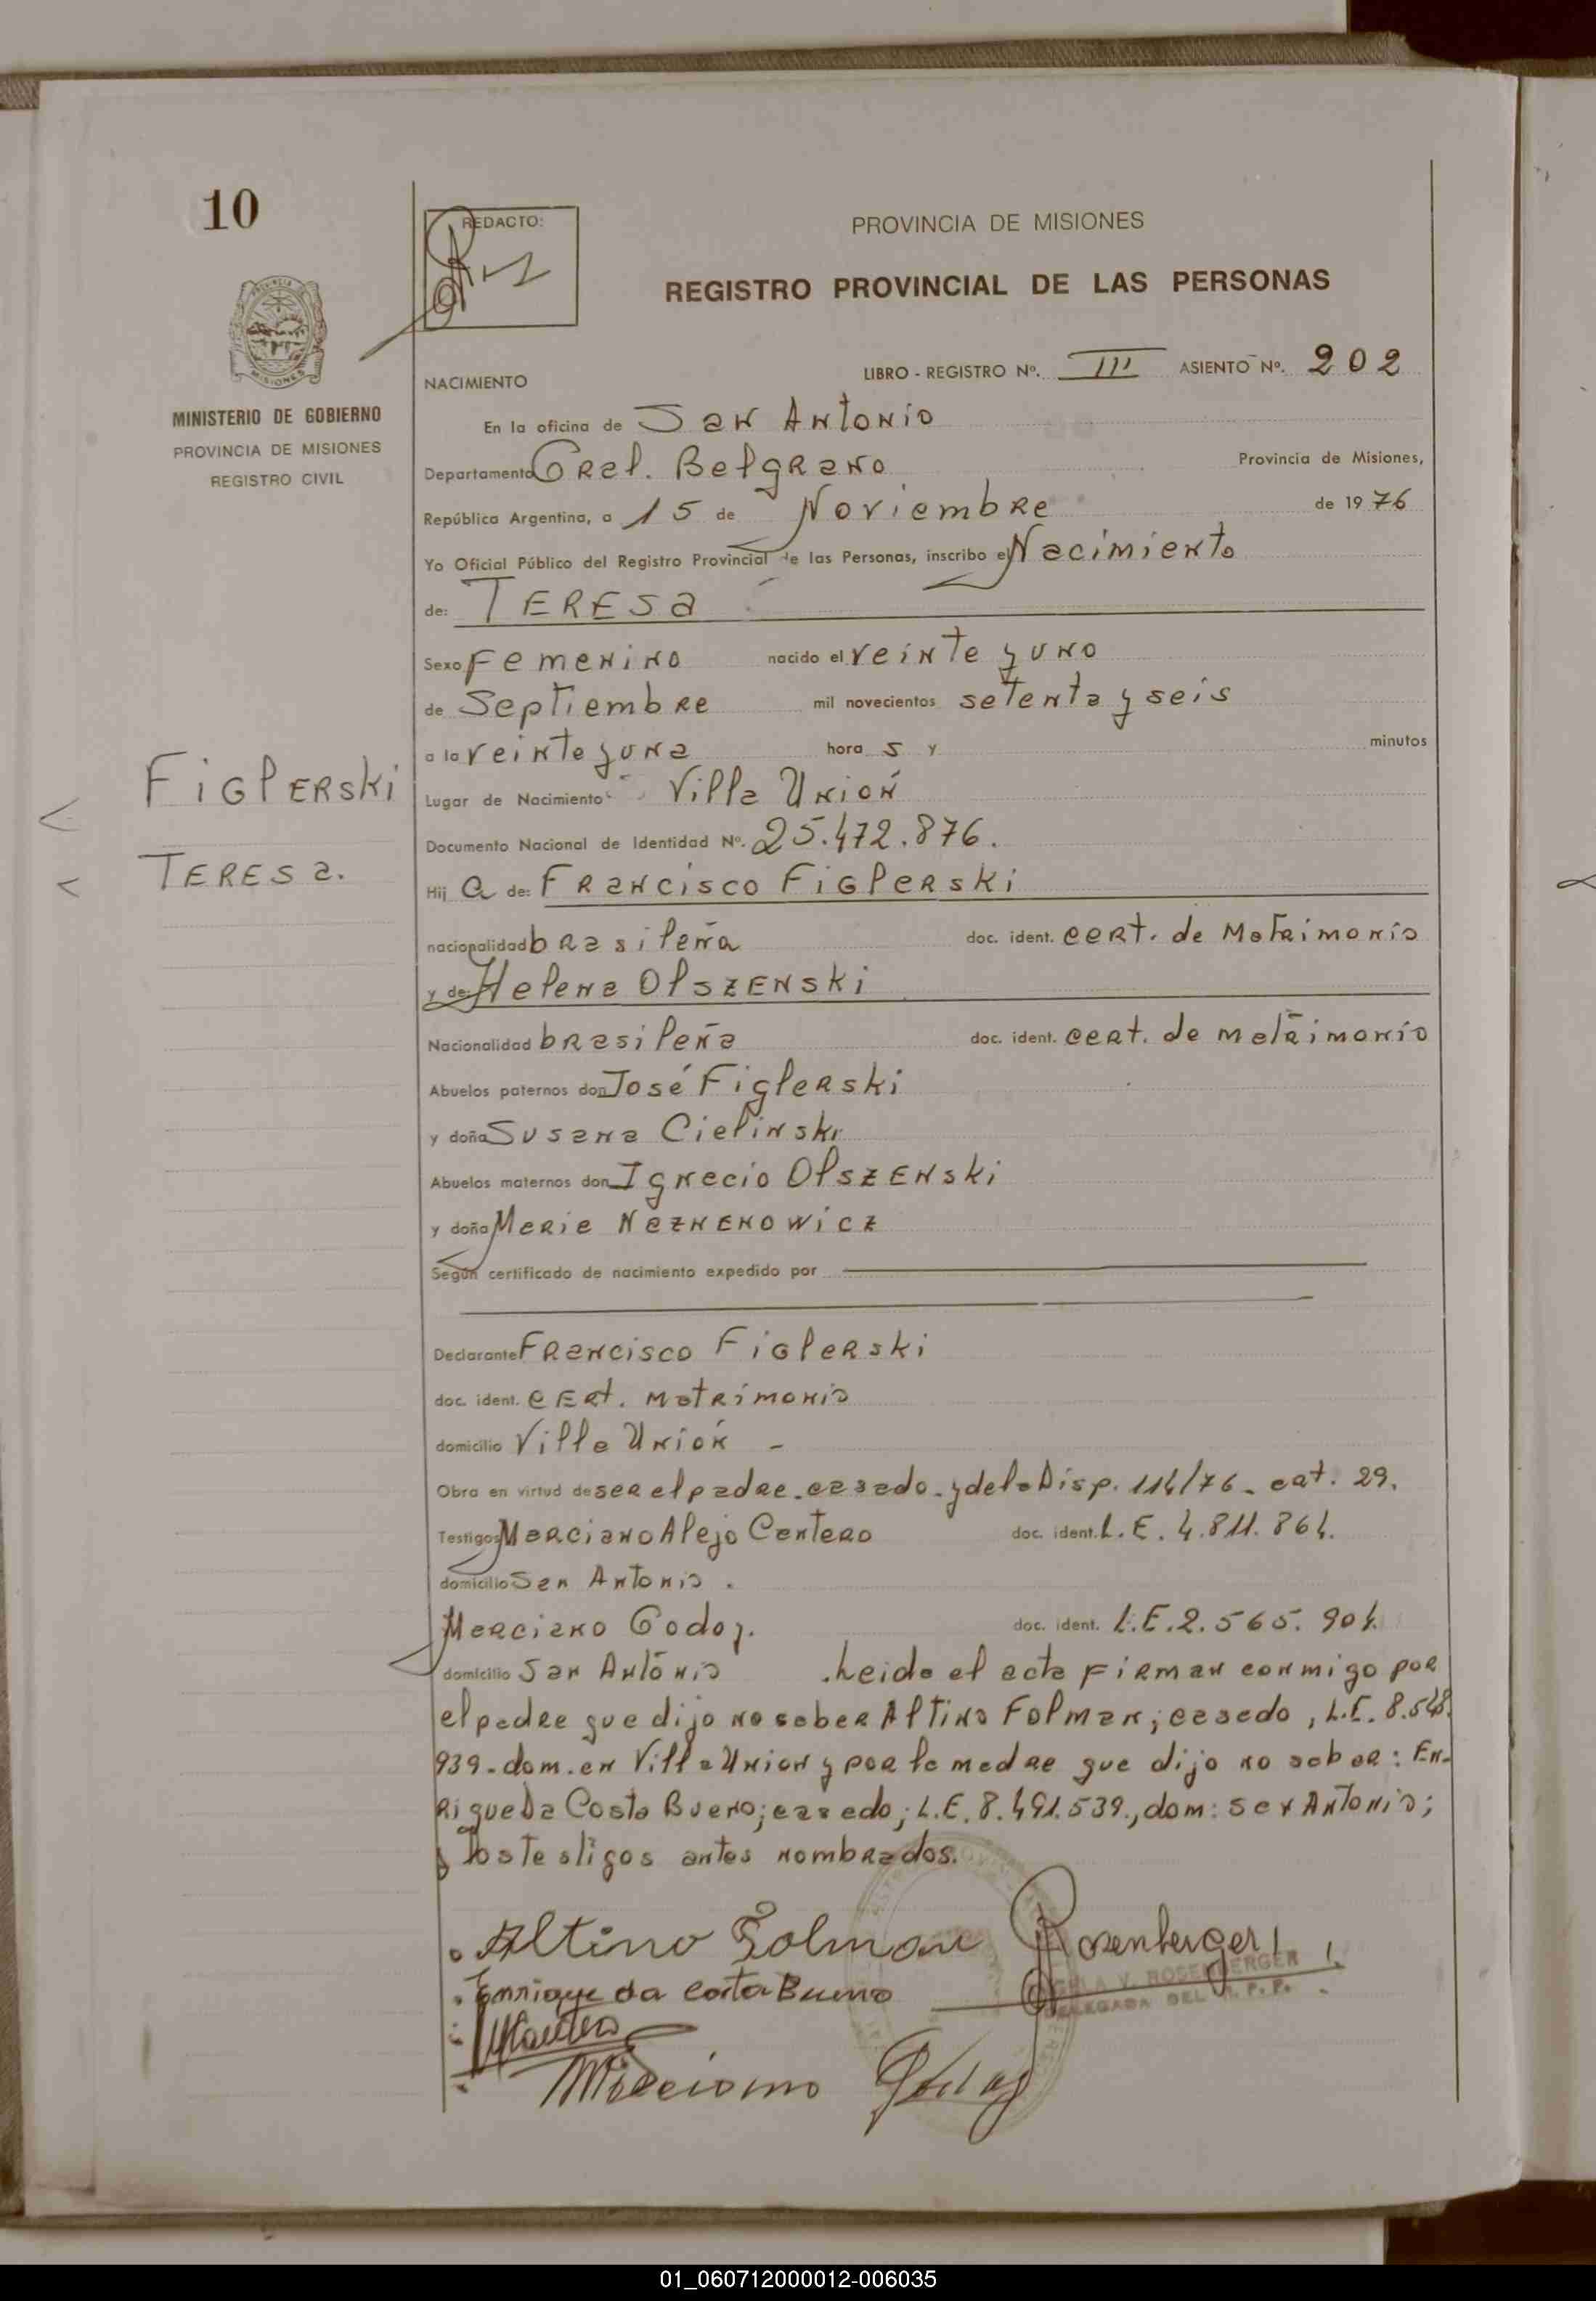 10
REDACTO:
PROVINCIA DE MISIONES
REGISTRO PROVINCIAL DE LAS PERSONAS
LIBRO - REGISTRO Nº. III ASIENTO Nº. 202
NACIMIENTO
MINISTERIO DE GOBIERNO
PROVINCIA DE MISIONES
REGISTRO CIVIL
En la oficina de San Antonio
Departamento Gral. Belgrano Provincia de Misiones,
República Argentina, a 15 de Noviembre de 1976
Yo Oficial Público del Registro Provincial de las Personas, inscribo el Nacimiento
de: TERESA
Sexo Femenino nacido el veinte y uno
de Septiembre mil novecientos setenta y seis
a la veinte y una hora s y minutos
Figlerski
Teresa.
Lugar de Nacimiento Villa Unión
Documento Nacional de Identidad Nº. 25.472.876.
Hij a de: Francisco Figlerski
nacionalidad brasileña doc. ident. cert. de Matrimonio
y de: Helena Olszenski
Nacionalidad brasileña doc. ident. cert. de matrimonio
Abuelos paternos don José Figlerski
y doña Susana Cielinski
Abuelos maternos don Ignacio Olszenski
y doña Maria Neznenowicz
Según certificado de nacimiento expedido por
Declarante Francisco Figlerski
doc. ident. cert. matrimonio
domicilio Villa Unión -
Obra en virtud de ser el padre - casado - y de la Disp. 114/76 - cat. 29.
Testigos Marciano Alejo Centero doc. ident. L.E. 4.811.864.
domicilio San Antonio.
Marciano Godoy. doc. ident. L.E. 2.565.904.
domicilio San Antonio . Leida el acta firman conmigo por
el padre que dijo no saber Altino Folman; casado, L.E. 8.548.
939 - dom. en Villa Union y por la madre que dijo no saber: En-
rique Da Costa Bueno; casado; L.E. 8.491.539., dom: San Antonio;
y los testigos antes nombrados.
Altino Folman Rosenberger
Enrique da Costa Bueno
V. ROSENBERGER
DELEGADA DEL R. P. P.
Marciano Godoy
01_060712000012-006035